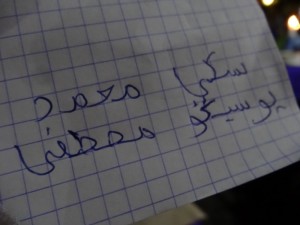 سكي محمد
بوسيكو مصطفى